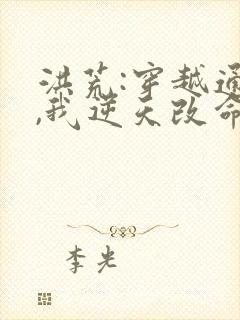 洪荒:穿越通
,我逆天改命
李光